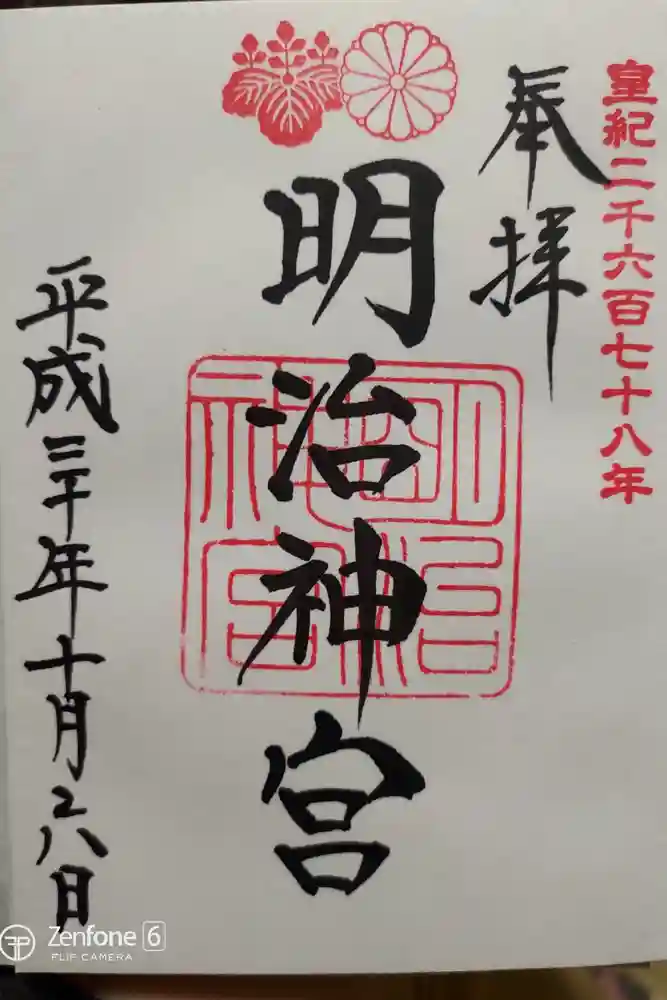 皇紀二千六百七十八年
奉拝
明治神宮
明治神宮
平成三十年十月二八日
Zenfone 6
FLIP CAMERA